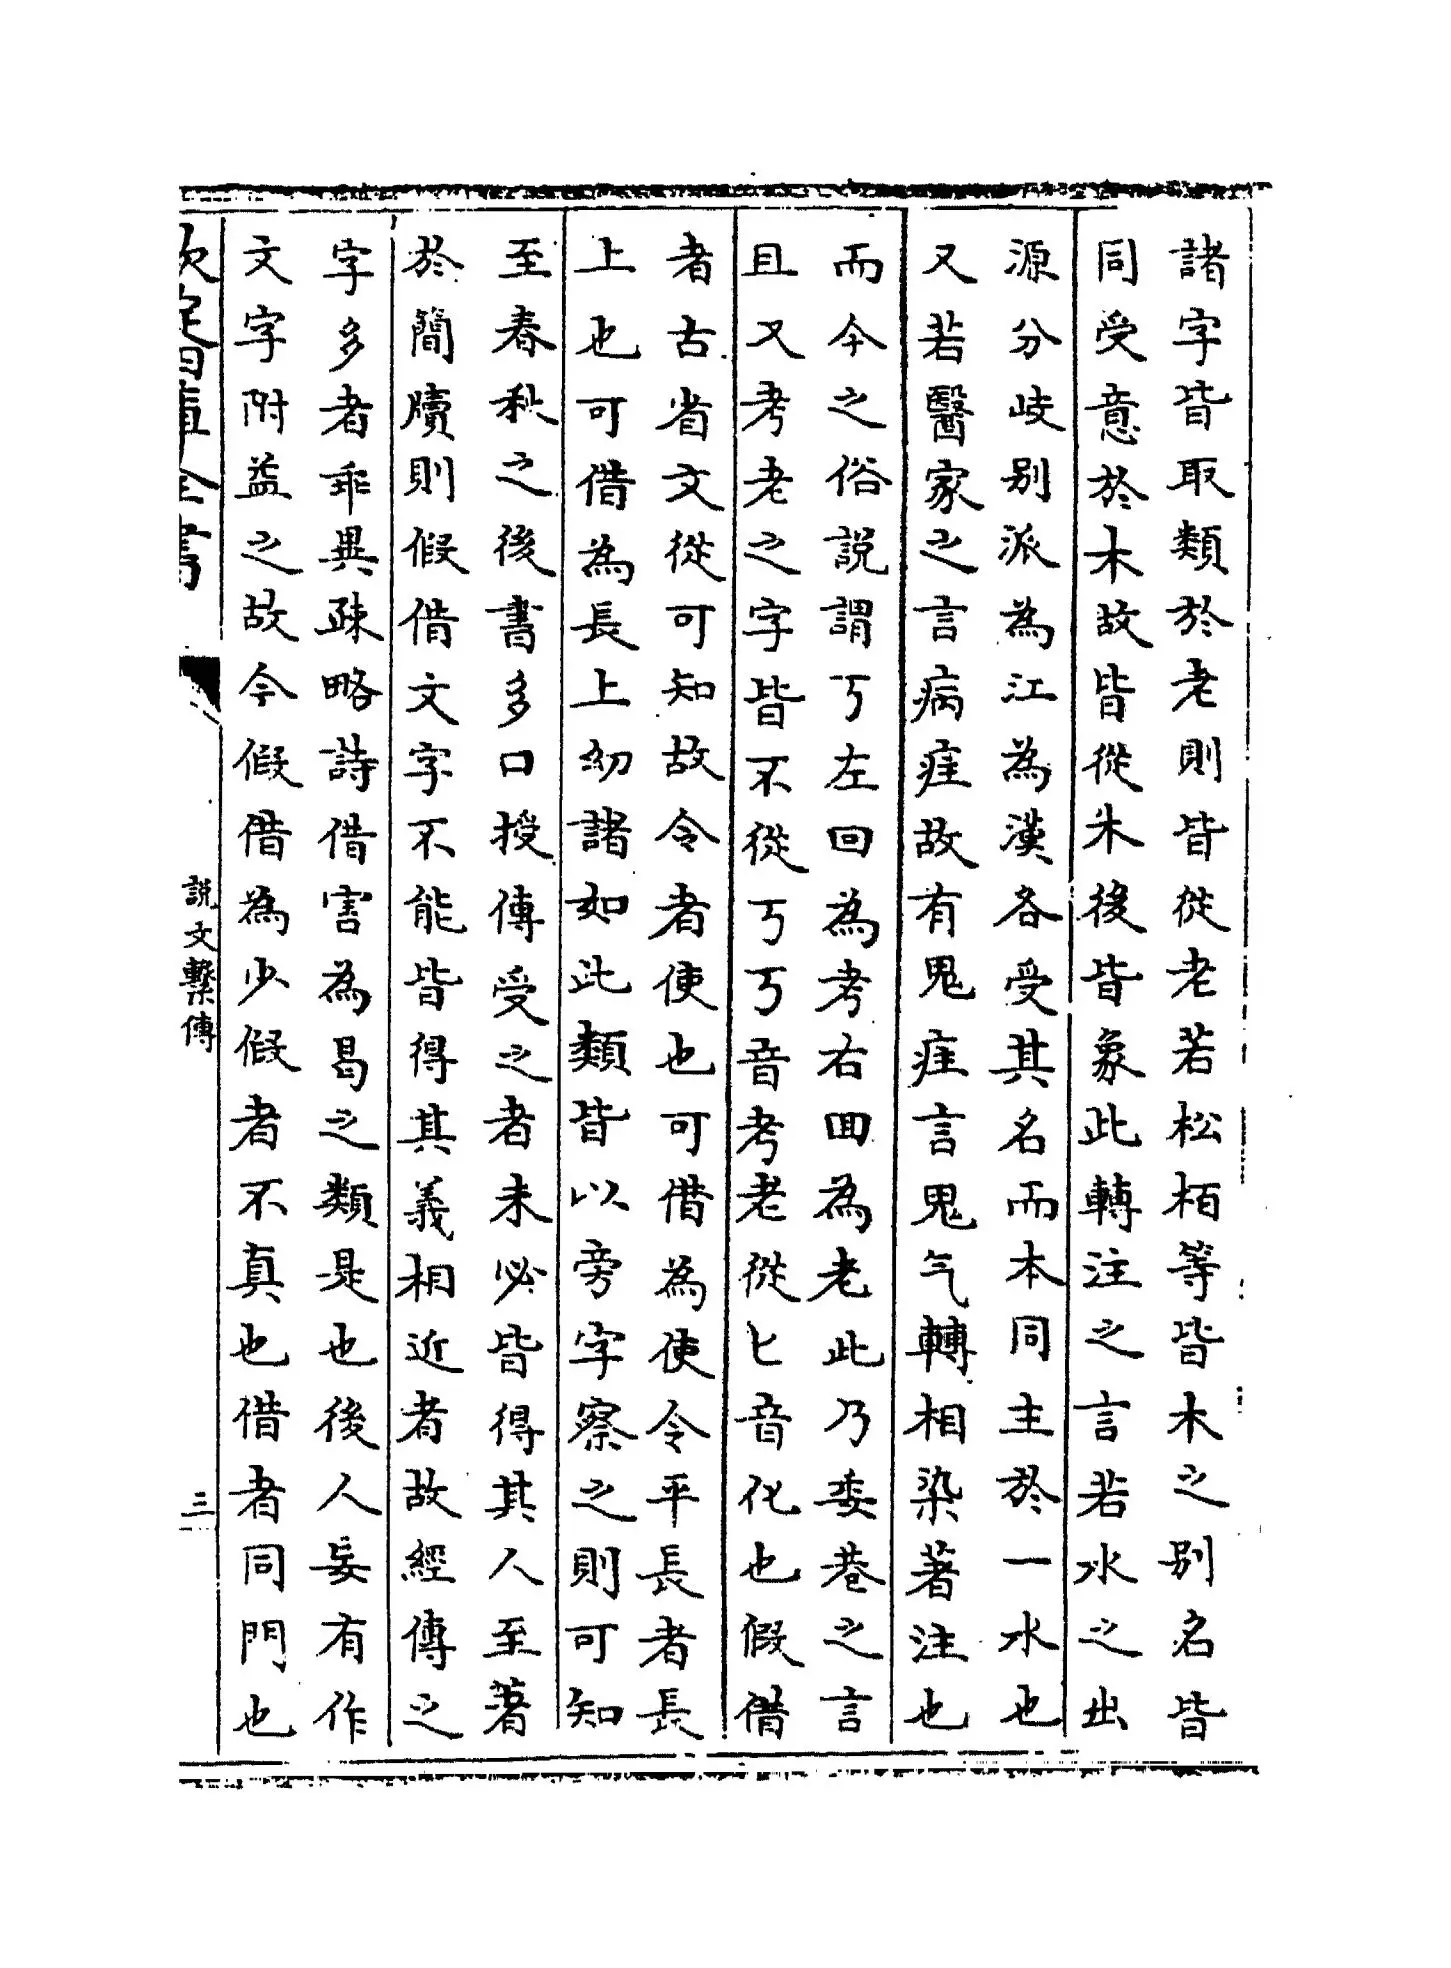 諸字皆取類於老則皆從老若松栢等皆木之别名皆
同受意於木故皆從木後皆象此轉注之言若水之出
源分歧别派為江為漢各受其名而本同主於一水也
又若醫家之言病疰故有鬼疰言鬼气轉相染著注也
而今之俗説謂丂左回為考右回為老此乃委巷之言
且又考老之字皆不從丂丂音考老從匕音化也假借
者古省文從可知故令者使也可借為使令平長者長
上也可借為長上幼諸如此類皆以旁字察之則可知
至春秋之後書多口授傳受之者未必皆得其人至著
於簡牘則假借文字不能皆得其義相近者故經傳之
字多者乖異疎略詩借害為曷之類是也後人妄有作
文字附益之故今假借為少假者不真也借者同門也
欽定四庫全書
説文繫傳
三